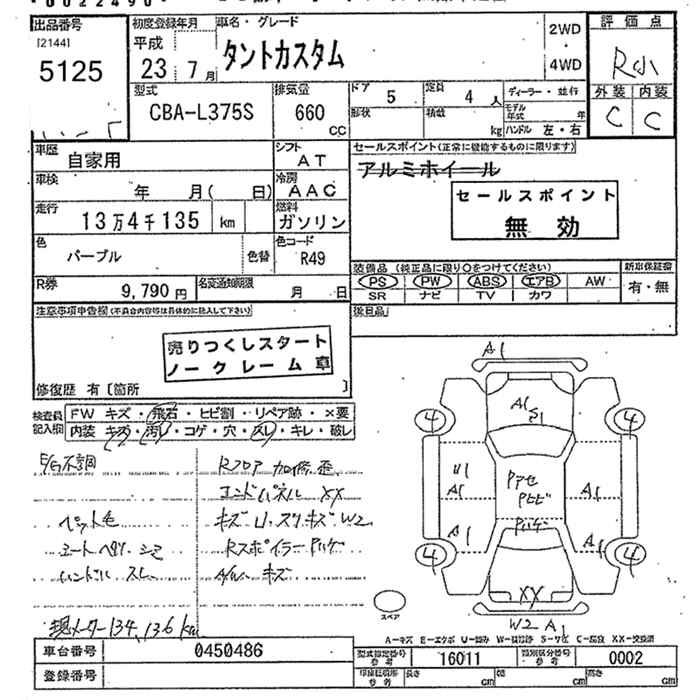 出品番号
[2144]
5125
初度登録年月
平成
23年 7月
車名・グレード
タントカスタム
2WD
・
4WD
評価点
R
外装 内装
C C
型式
CBA-L375S
排気量
660
CC
ドア
5
定員
4人
形状
積載
kg
ディーラー・並行
モデル年式 年
ハンドル 左・右
車歴
自家用
シフト
AT
車検
年 月( 日)
冷房
AAC
走行
13万4千135 km
燃料
ガソリン
色
パープル
色替
色コード
R49
R券
9,790円
名変通知期限
月 日
セールスポイント(正常に機能するものに限ります)
アルミホイール
セールスポイント
無効
装備品(純正品に限り○をつけてください)
PS PW ABS エアB AW
SR ナビ TV カワ
新車保証書
有・無
注意事項申告欄(不具合内容等は具体的に記入して下さい)
後日品
売りつくしスタート
ノークレーム車
修復歴 有〔箇所 〕
検査員
記入欄
FW キズ・飛石・ヒビ割・リペア跡・×要
内装 キズ・汚レ・コゲ・穴・スレ・キレ・破レ
不調
Rフロア 加修 歪
エンドパネル XX
キズU.スリキズ W2
ペット毛
シート ヘタリ シミ
Rスポイラー
ハンドル スレ
アルミ キズ
現メーター134,136km
A1
A1
S1
4 4
U1
A1
A1
A1
A1
4 4
XX
W2 A1
スペア
A-キズ E-エクボ U-凹み W-補修跡 S-サビ C-腐食 XX-交換済
車台番号
0450486
登録番号
型式指定番号
参考
16011
類別区分番号
参考
0002
車体形状
参考
長さ cm
幅 cm
高さ cm